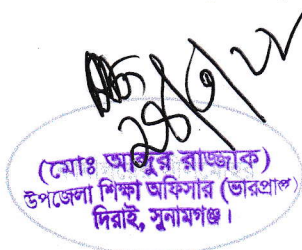 (মোঃ আব্দুর রাজ্জাক)
উপজেলা শিক্ষা অফিসার (ভারপ্রাপ্ত
দিরাই, সুনামগঞ্জ।